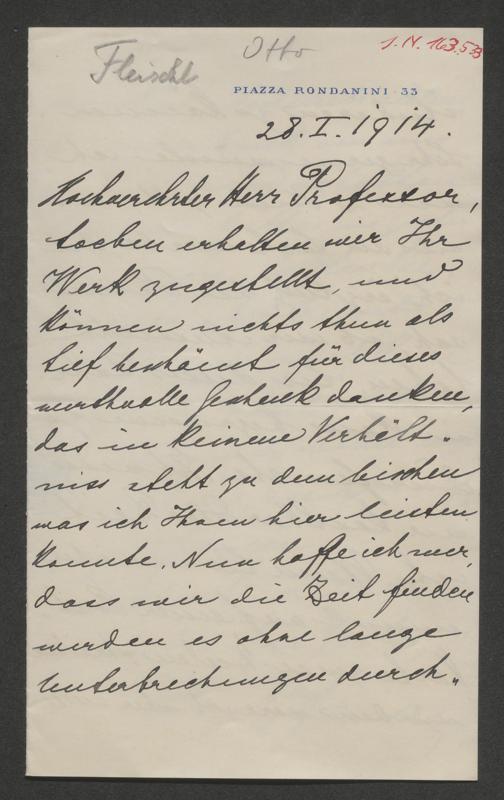 Fleischl Otto I.N. 163.533
PIAZZA RONDANINI 33
28.I.1914.
Hochverehrter Herr Professor,
soeben erhalten wir Ihr
Werk zugestellt, und
können nichts thun als
tief beschämt für dieses
werthvolle Geschenk danken,
das in keinem Verhält-
niss steht zu dem bischen
was ich Ihnen hier leisten
konnte. Nun hoffe ich nur,
dass wir die Zeit finden
werden es ohne lange
Unterbrechungen durch-